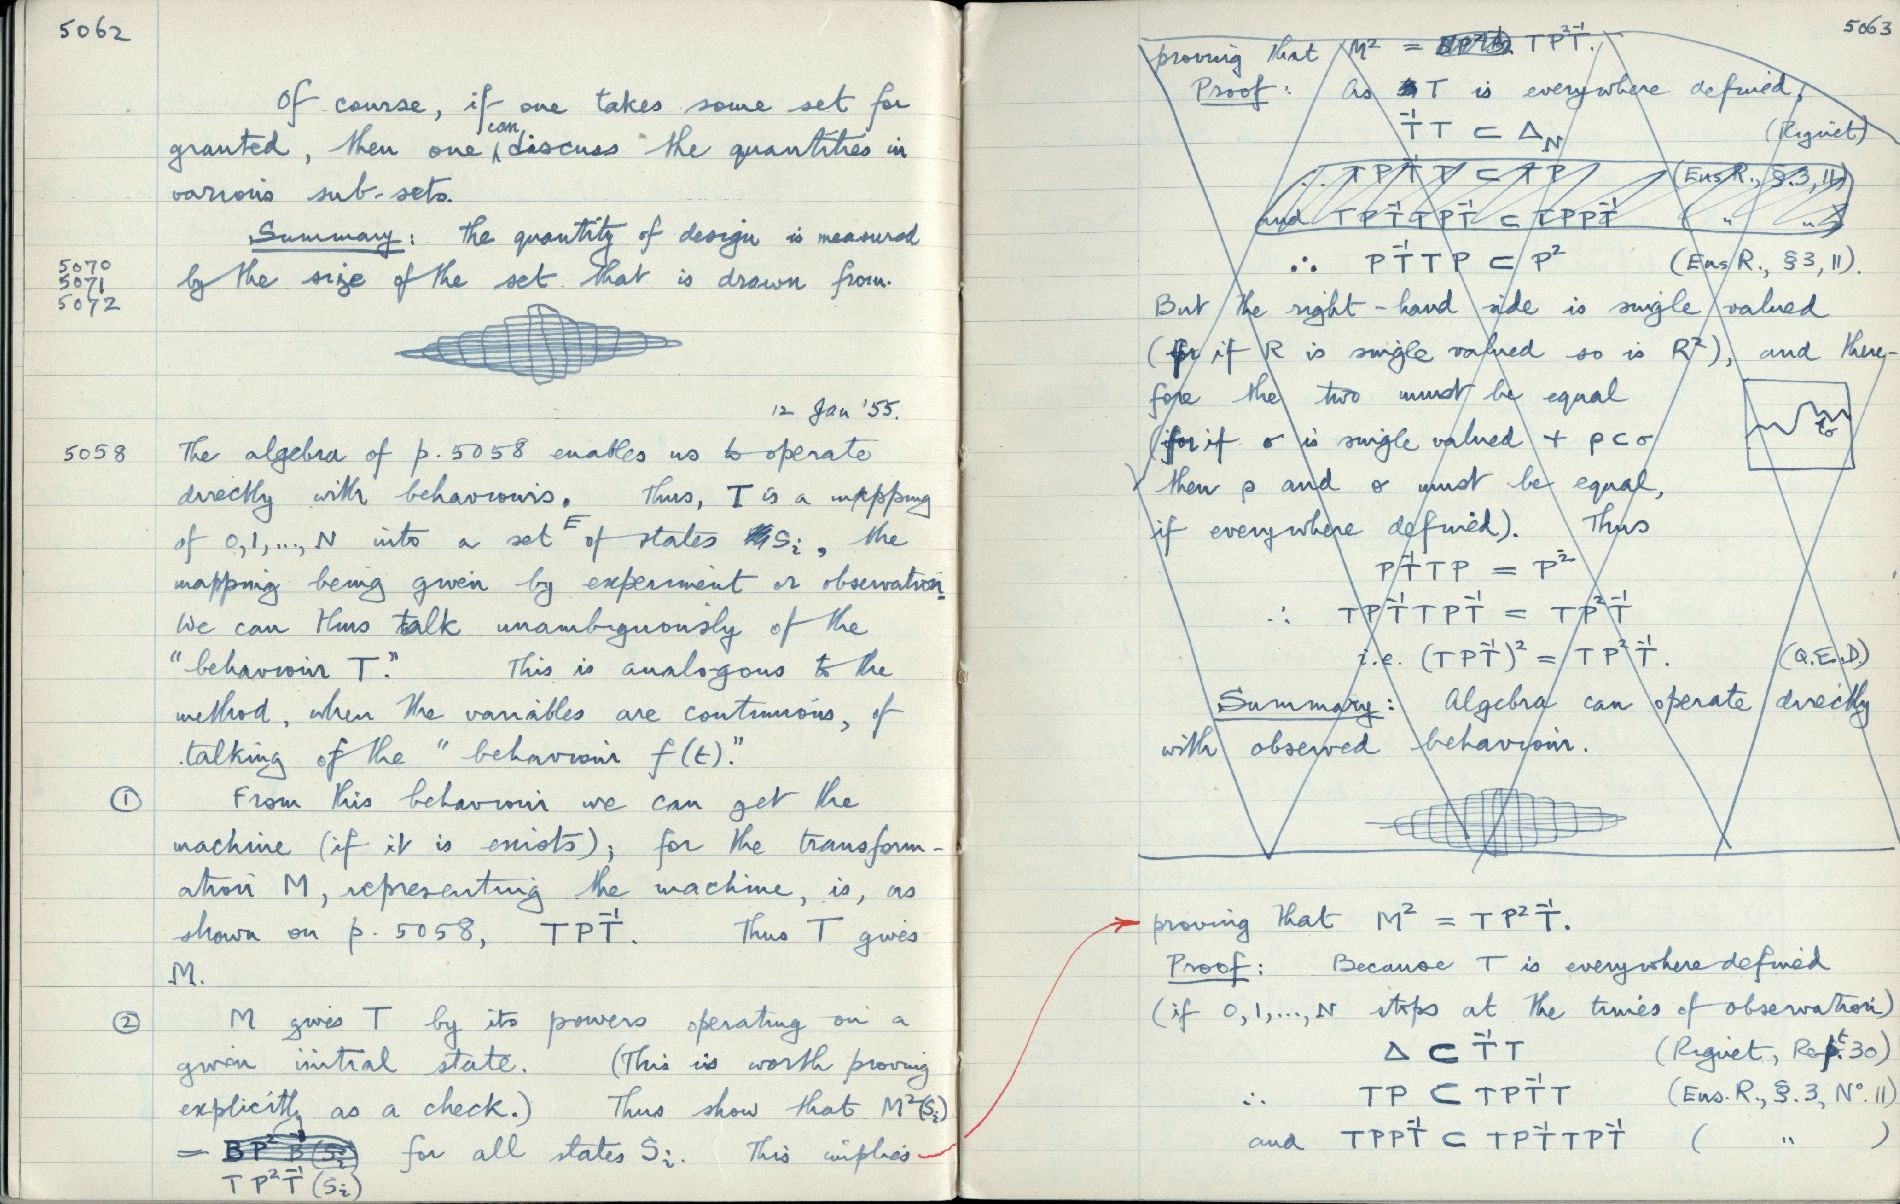 5062
Of course, if one takes some set for
granted, then one can discuss the quantities in
various sub-sets.
Summary: The quantity of design is measured
5070
5071
5072
by the size of the set that is drawn from.
12 Jan '55.
5058
The algebra of p. 5058 enables us to operate
directly with behaviours. Thus, T is a mapping
of 0,1,..., N into a set E of states Sᵢ, the
mapping being given by experiment or observation.
We can thus talk unambiguously of the
"behaviour T." This is analogous to the
method, when the variables are continuous, of
talking of the "behaviour f(t)."
① From this behaviour we can get the
machine (if it is exists); for the transform-
ation M, representing the machine, is, as
shown on p. 5058, TPT⁻¹. Thus T gives
M.
② M gives T by its powers operating on a
given initial state. (This is worth proving
explicitly as a check.) Thus show that M²(Sᵢ)
= BP²B⁻¹(Sᵢ) for all states Sᵢ. This implies
TP²T⁻¹(Sᵢ)
5063
proving that M² = TP²T⁻¹.
Proof: As T is everywhere defined,
T⁻¹T ⊂ Δ_N (Riguet)
∴ TPT⁻¹T ⊂ TP (Ens. R., §.3, 11)
and TPT⁻¹TPT⁻¹ ⊂ TPPT⁻¹ ( " " )
∴ PT⁻¹TP ⊂ P² (Ens R., §3, 11).
But the right-hand side is single valued
(for if R is single valued so is R²), and there-
fore the two must be equal
(for if σ is single valued + ρ⊂σ
then ρ and σ must be equal,
if everywhere defined). Thus
PT⁻¹TP = P²
∴ TPT⁻¹TPT⁻¹ = TP²T⁻¹
i.e. (TPT⁻¹)² = TP²T⁻¹. (Q.E.D.)
Summary: Algebra can operate directly
with observed behaviour.
proving that M² = TP²T⁻¹.
Proof: Because T is everywhere defined
(if 0,1,...,N stops at the times of observation)
Δ ⊂ T⁻¹T (Riguet, Rept. 30)
∴ TP ⊂ TPT⁻¹T (Ens. R., §.3, Nº. 11)
and TPPT⁻¹ ⊂ TPT⁻¹TPT⁻¹ ( " )